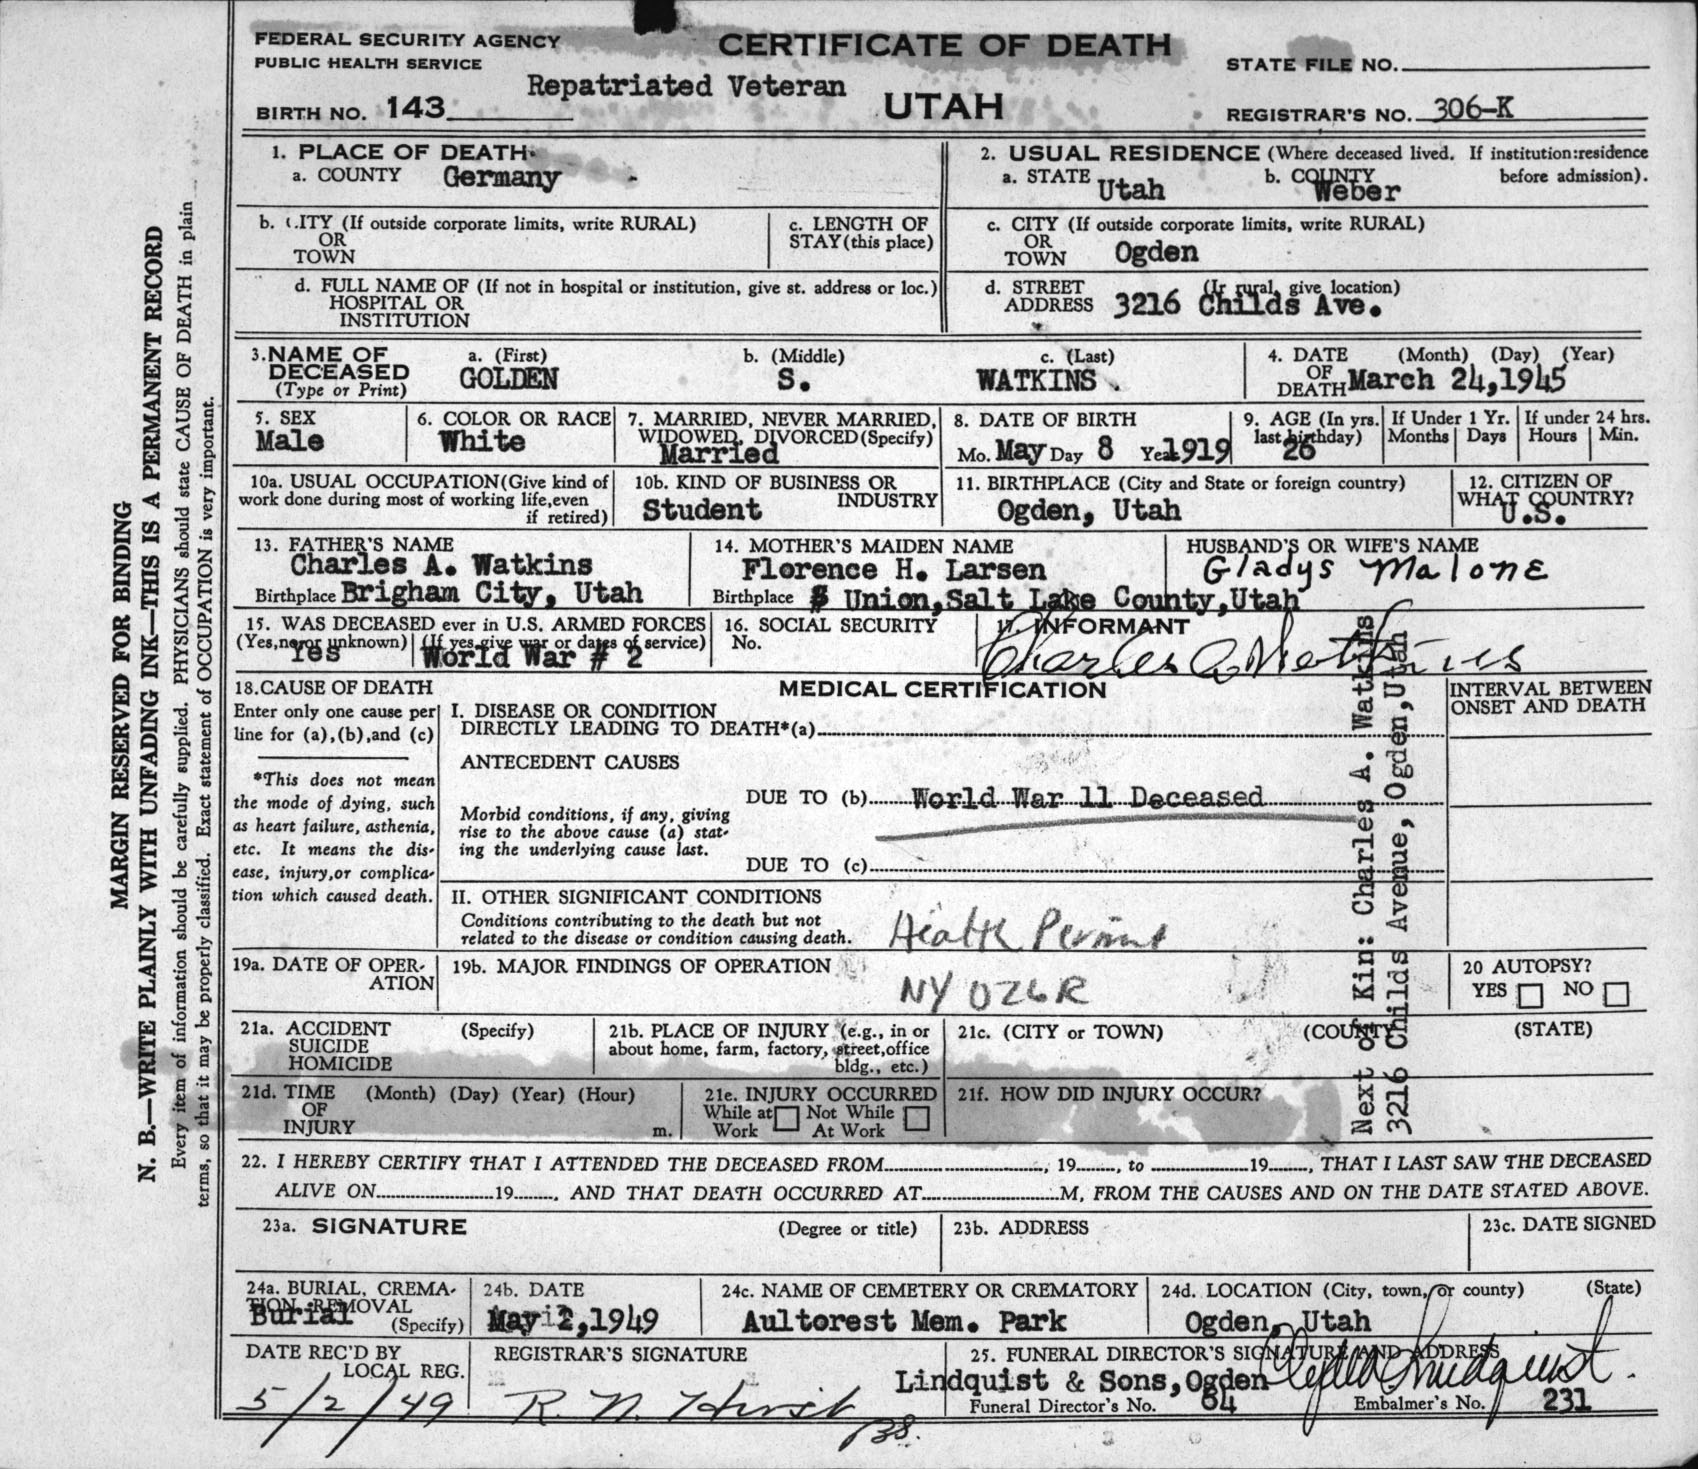 FEDERAL SECURITY AGENCY
PUBLIC HEALTH SERVICE
CERTIFICATE OF DEATH
STATE FILE NO.
Repatriated Veteran
BIRTH NO. 143
UTAH
REGISTRAR'S NO. 306-K
1. PLACE OF DEATH
a. COUNTY Germany
2. USUAL RESIDENCE (Where deceased lived. If institution:residence before admission).
a. STATE Utah b. COUNTY Weber
b. CITY (If outside corporate limits, write RURAL)
OR
TOWN
c. LENGTH OF
STAY (this place)
c. CITY (If outside corporate limits, write RURAL)
OR
TOWN Ogden
d. FULL NAME OF (If not in hospital or institution, give st. address or loc.)
HOSPITAL OR
INSTITUTION
d. STREET (If rural, give location)
ADDRESS 3216 Childs Ave.
3. NAME OF
DECEASED
(Type or Print)
a. (First)
GOLDEN
b. (Middle)
S.
c. (Last)
WATKINS .
4. DATE (Month) (Day) (Year)
OF
DEATH March 24,1945
5. SEX
Male
6. COLOR OR RACE
White
7. MARRIED, NEVER MARRIED,
WIDOWED, DIVORCED (Specify)
Married
8. DATE OF BIRTH
Mo. May Day 8 Year 1919
9. AGE (In yrs.
last birthday)
26
If Under 1 Yr.
Months Days
If under 24 hrs.
Hours Min.
10a. USUAL OCCUPATION (Give kind of
work done during most of working life, even
if retired)
10b. KIND OF BUSINESS OR
INDUSTRY
Student
11. BIRTHPLACE (City and State or foreign country)
Ogden, Utah
12. CITIZEN OF
WHAT COUNTRY?
U.S.
13. FATHER'S NAME
Charles A. Watkins
Birthplace Brigham City, Utah
14. MOTHER'S MAIDEN NAME
Florence H. Larsen
Birthplace Union,Salt Lake County,Utah
HUSBAND'S OR WIFE'S NAME
Gladys Malone
15. WAS DECEASED ever in U.S. ARMED FORCES
(Yes, no or unknown) (If yes give war or dates of service)
Yes World War # 2
16. SOCIAL SECURITY
No.
17. INFORMANT
Charles A Watkins
18. CAUSE OF DEATH
Enter only one cause per
line for (a), (b), and (c)
*This does not mean
the mode of dying, such
as heart failure, asthenia,
etc. It means the dis-
ease, injury, or complica-
tion which caused death.
MEDICAL CERTIFICATION
INTERVAL BETWEEN
ONSET AND DEATH
I. DISEASE OR CONDITION
DIRECTLY LEADING TO DEATH*(a)
ANTECEDENT CAUSES
DUE TO (b) World War 11 Deceased
Morbid conditions, if any, giving
rise to the above cause (a) stat-
ing the underlying cause last.
DUE TO (c)
II. OTHER SIGNIFICANT CONDITIONS
Conditions contributing to the death but not
related to the disease or condition causing death.
Health Permit
19a. DATE OF OPER-
ATION
19b. MAJOR FINDINGS OF OPERATION
NY 026R
20 AUTOPSY?
YES NO
21a. ACCIDENT (Specify)
SUICIDE
HOMICIDE
21b. PLACE OF INJURY (e.g., in or
about home, farm, factory, street, office
bldg., etc.)
21c. (CITY or TOWN) (COUNTY) (STATE)
21d. TIME (Month) (Day) (Year) (Hour)
OF
INJURY m.
21e. INJURY OCCURRED
While at Not While
Work At Work
21f. HOW DID INJURY OCCUR?
22. I HEREBY CERTIFY THAT I ATTENDED THE DECEASED FROM , 19 , to 19 , THAT I LAST SAW THE DECEASED
ALIVE ON 19 , AND THAT DEATH OCCURRED AT M, FROM THE CAUSES AND ON THE DATE STATED ABOVE.
23a. SIGNATURE (Degree or title)
23b. ADDRESS
23c. DATE SIGNED
24a. BURIAL, CREMA-
TION, REMOVAL
(Specify)
Burial
24b. DATE
May 2,1949
24c. NAME OF CEMETERY OR CREMATORY
Aultorest Mem. Park
24d. LOCATION (City, town, or county) (State)
Ogden, Utah
DATE REC'D BY
LOCAL REG.
5/2/49
REGISTRAR'S SIGNATURE
R. N. Hirst
BS.
25. FUNERAL DIRECTOR'S SIGNATURE AND ADDRESS
Lindquist & Sons,Ogden
Lindquist
Funeral Director's No. 64
Embalmer's No. 231
Next of Kin: Charles A. Watkins
3216 Childs Avenue, Ogden,Utah
MARGIN RESERVED FOR BINDING
N. B.—WRITE PLAINLY WITH UNFADING INK—THIS IS A PERMANENT RECORD
Every item of information should be carefully supplied. PHYSICIANS should state CAUSE OF DEATH in plain
terms, so that it may be properly classified. Exact statement of OCCUPATION is very important.